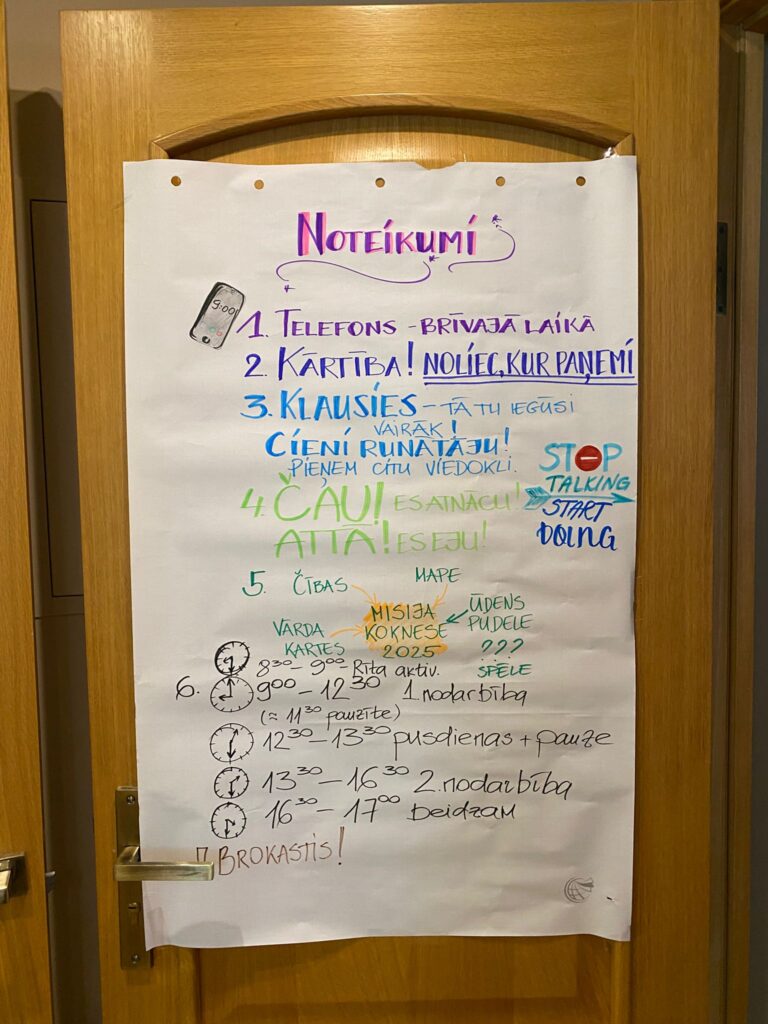 NOTEIKUMI
9:00
1. TELEFONS - BRĪVAJĀ LAIKĀ
2. KĀRTĪBA! NOLIEC, KUR PAŅEMĪ
3. KLAUSIES - TĀ TU IEGŪSI
VAIRĀK!
CIENĪ RUNĀTĀJU!
PIEŅEM CITU VIEDOKLI.
STOP
TALKING
START
DOING
4. ČAU! ES ATNĀCU!
ATTĀ! ES EJU!
5. ČĪBAS
MAPE
MISIJA
KOKNESE
2025
ŪDENS
PUDELE
VĀRDA
KARTES
???
SPĒLE
8³⁰ - 9⁰⁰ - Rīta aktiv.
6. 9⁰⁰ - 12³⁰ 1. nodarbība
(≈ 11³⁰ pauzīte)
12³⁰ - 13³⁰ pusdienas + pauze
13³⁰ - 16³⁰ 2. nodarbība
16³⁰ - 17⁰⁰ beidzam
7. BROKASTIS!